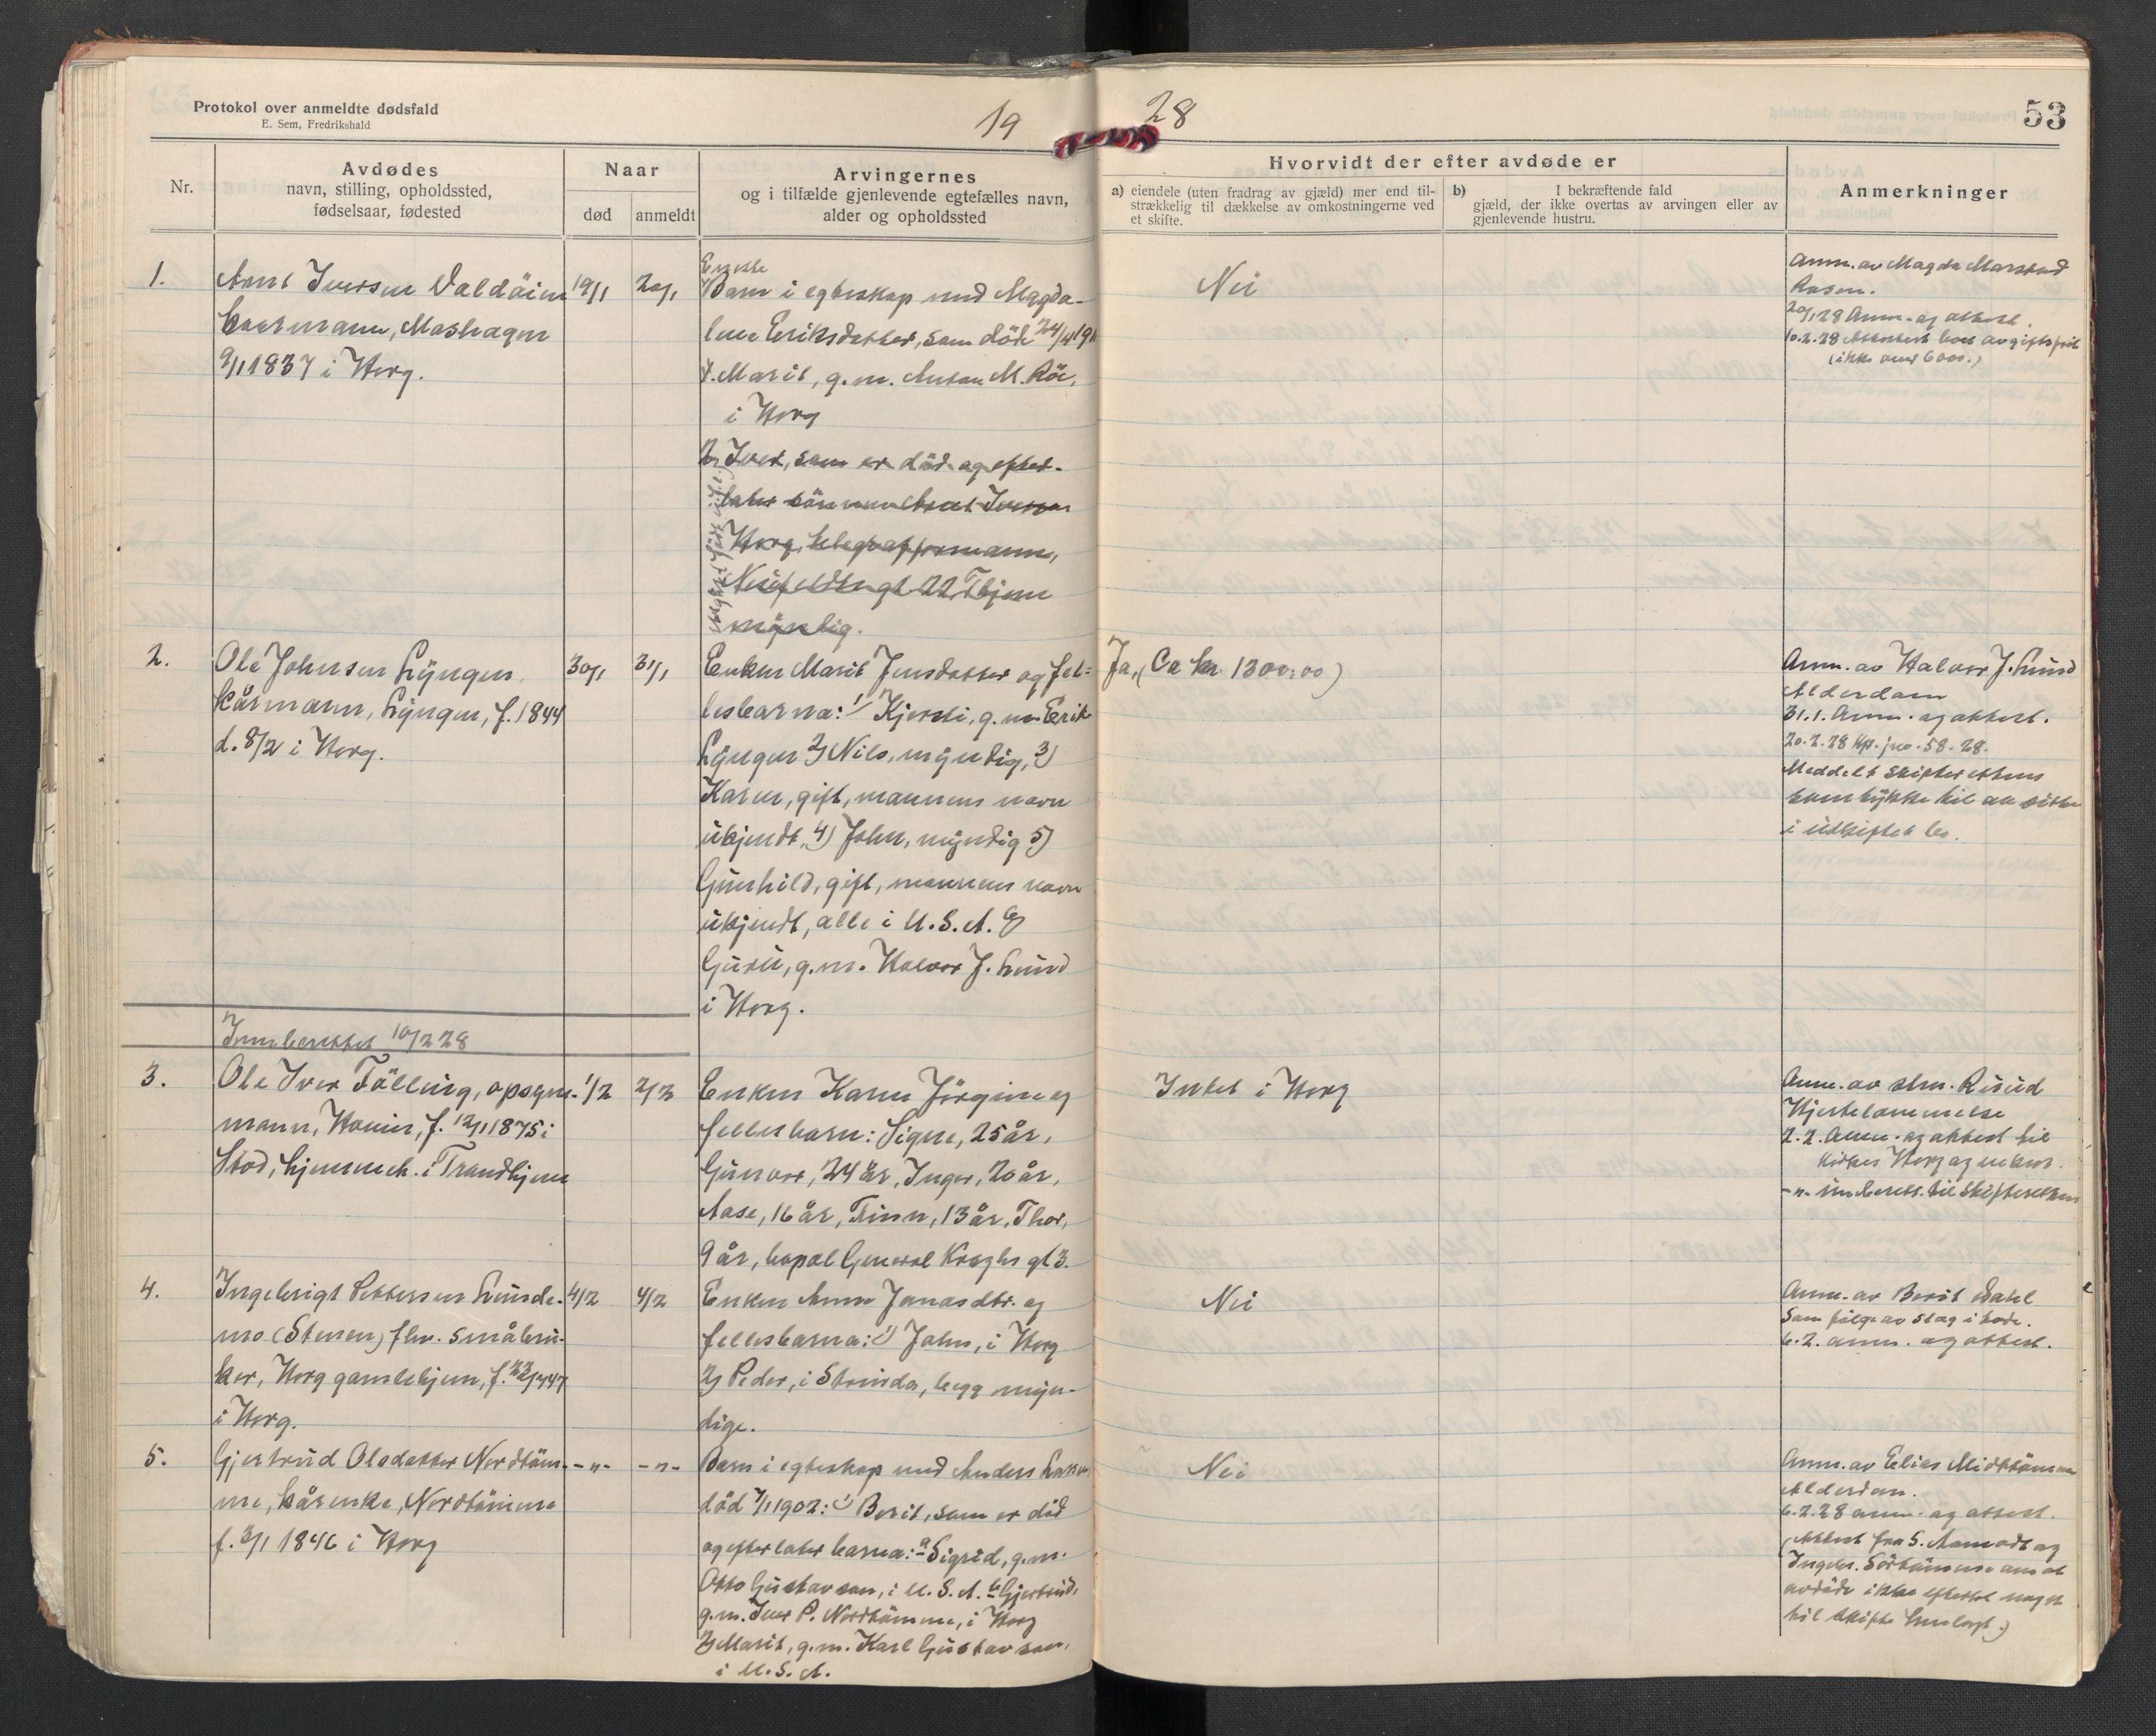 Protokol over anmeldte dødsfald
E. Sem, Fredrikshald
19 28
53
Nr.
Avdødes
navn, stilling, opholdssted,
fødselsaar, fødested
Naar
død
anmeldt
Arvingernes
og i tilfælde gjenlevende egtefælles navn,
alder og opholdssted
Hvorvidt der efter avdøde er
a) eiendele (uten fradrag av gjæld) mer end til-
strækkelig til dækkelse av omkostningerne ved
et skifte.
b) I bekræftende fald
gjæld, der ikke overtas av arvingen eller av
gjenlevende hustru.
Anmerkninger
1.
Arnt Iversen Valdöien
kaarmann, Moshagen
9/1 1837 i Horg.
19/1
20/1
Eneste
Barn i egteskap med Magda-
lena Eriksdatter, som döde 24/4 191
1. Marit, g.m. Anton M. Röe,
i Horg
2, Iver, som er död og efter-
later sönnen Arnt Iversen
Horg, telegrafformann,
gt 22, Thjem
myndig.
Nei
Anm. av Magda Marstad
Rosen.
20/1 28 Anm. og attest.
10.2.28 avgiftsfrit
(ikke over 600.)
2.
Ole Johnsen Lyngen,
kårmann, Lyngen, f. 1844
d. 8/2 i Horg.
30/1
31/1
Enken Marit Jensdatter og fel-
lesbarna: 1) Kjersti, g.m. Erik
Lyngen 2) Nils, myndig, 3)
Karen, gift, mannens navn
ukjendt, 4) John, myndig 5)
Gunhild, gift, mannens navn
ukjendt, alle i U.S.A. 6)
Guru, g.m. Halvor J. Lund
i Horg.
Ja, (Ca kr. 1300,00)
Anm. av Halvor J. Lund
Alderdom
31.1. Anm. og attest.
20.2.28 Kp. jno. 58-28.
Meddelt skifterettens
samtykke til at sitte
i uskiftet bo.
Innberettet 10/2 28
3.
Ole Iver Fölling, opsyns-
mann, Hovin, f. 12/1 1875 i
Stod, hjemmeh. i Trondhjem
1/2
2/2
Enken Karen Jörgine og
fellesbarn: Signe, 25 år,
Gunvor, 24 år, Inger, 20 år,
Aase, 16 år, Finn, 13 år, Thor,
9 år, bopæl General gt 3.
Intet i Horg
Anm. av Risud
Hjertelammelse
2.2. Anm. og attest til
kirken Horg og enken.
-"- innberett. til Skifteretten
4.
Ingebrigt Pettersen Lunde-
mo (Stenen) fhv. småbru-
ker, Horg gamlehjem, f. 22/
i Horg.
4/2
4/2
Enken Anne Jonasdtr. og
fellesbarna: 1) John, i Horg
2) Peder, i Strinda, begge myn-
dige.
Nei
Anm. av Berit Dahl
Som fölge av slag i hode.
6.2. anm. og attest.
5.
Gjertrud Olsdatter Nordtöm-
me, kårenke, Nordtömme
f. 3/1 1846 i Horg
-"-
-"-
Barn i egteskap med Anders
död 7/1 1902: 1) Berit, som er död
og efterlater barna: a Sigrid, g.m.
Otto Gustavson, i U.S.A. b Gjertrud,
g.m. Iver P. Nordtömme, i Horg
2) Marit, g.m. Karl Gustavson,
i U.S.A.
Nei
Anm. av Elias Midttömme
Alderdom.
6.2.28 anm. og attest.
(Attest fra S. Aamodt og
Ingebr. Sörtömme om at
avdöde ikke efterlot noget
til skifte fremlagt.)